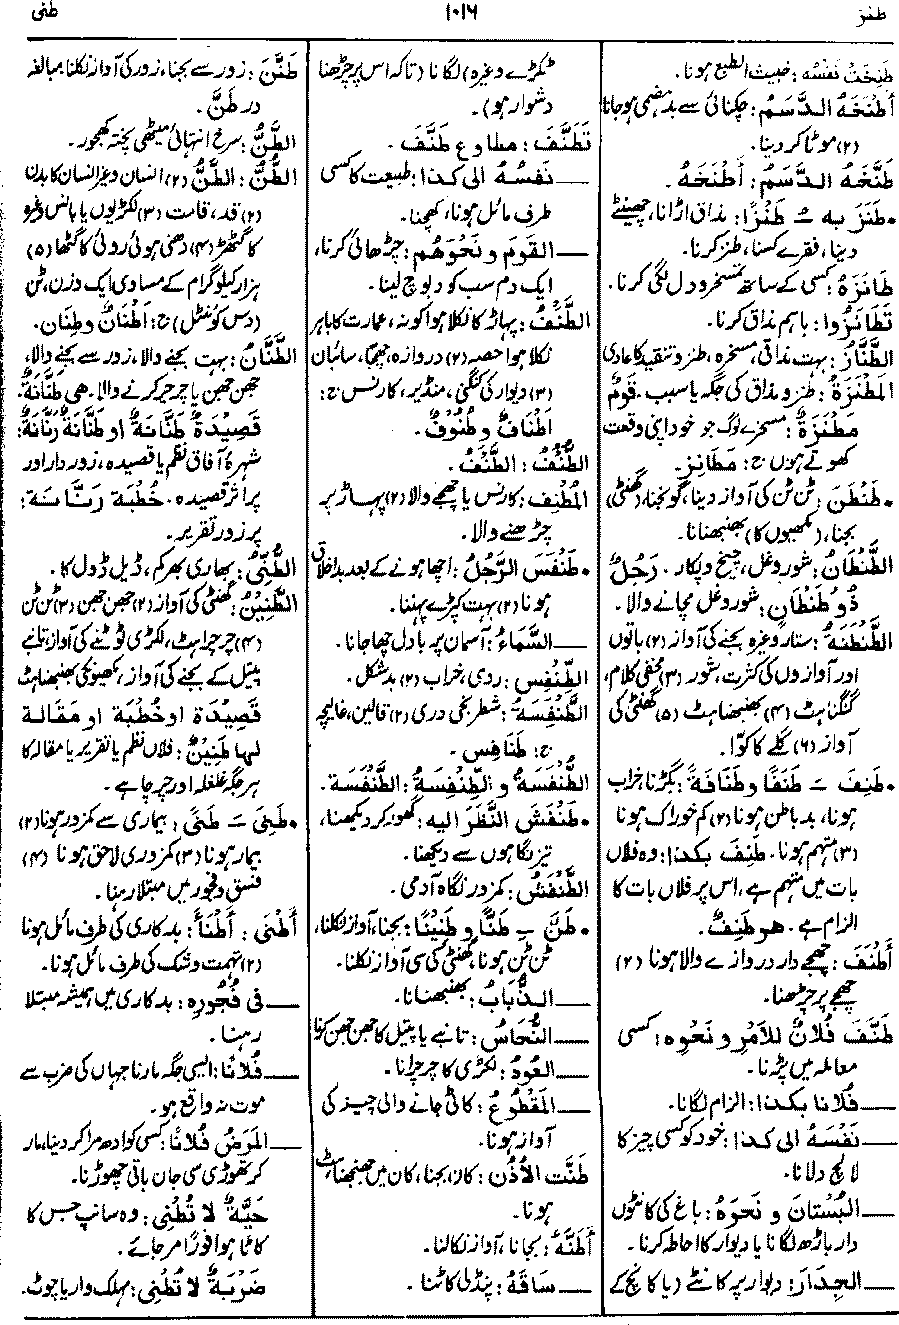 طنز
۱۰۱۶
طنی
طَنِخَتْ نَفْسُه : خبیث الطبع ہونا۔
أَطْنَخَهُ الدَّسَمُ : چکنائی سے بدہضمی ہوجانا
(۲) موٹا کر دینا۔
طَنَّخَهُ الدَّسَمُ : أَطْنَخَهُ ۔
• طَنَزَ بِه ـُ طَنْزًا : مذاق اڑانا، چھینٹے
دینا، فقرے کسنا، طنز کرنا۔
طَانَزَهُ : کسی کے ساتھ تمسخر و دل لگی کرنا۔
تَطَانَزُوا : باہم مذاق کرنا۔
الطَّنَّازُ : بہت مذاقی، مسخرہ، طنز و تنقید کا عادی
المَطْنَزَةُ : طنز و مذاق کی جگہ یا سبب۔ قَومٌ
مَطْنَزَةٌ : مسخرے لوگ جو خود اپنی وقعت
کھوتے ہوں ج : مَطَانِز۔
• طَنْطَنَ : ٹن ٹن کی آواز دینا، گونجنا، (گھنٹی)
بجنا، (مکھیوں کا) بھنبھنانا۔
الطَّنْطَانُ : شور و غل، چیخ و پکار ۔ رَجُلٌ
ذُو طَنْطَانٍ : شور و غل مچانے والا۔
الطَّنْطَنَةُ : ستار وغیرہ بجنے کی آواز (۲) باتوں
اور آوازوں کی کثرت، شور (۳) مخفی کلام،
گنگناہٹ (۴) بھنبھناہٹ (۵) گھنٹی کی
آواز (۶) گلے کا کوّا۔
• طَنِفَ ـَ طَنَفًا وطَنَافَةً : بگڑنا خراب
ہونا، بد باطن ہونا (۲) کم خوراک ہونا
(۳) متہم ہونا۔ طَنِفَ بكذا : وہ فلاں
بات میں متہم ہے، اس پر فلاں بات کا
الزام ہے۔ هو طَنِفٌ۔
أَطْنَفَ : چھجے دار دروازے والا ہونا (۲)
چھجے پر چڑھنا۔
طَنَّفَ فُلَانٌ للأَمْرِ و نَحْوِه : کسی
معاملہ میں پڑنا۔
ــــ فُلَانًا بكذا : الزام لگانا۔
ــــ نَفْسَهُ الى كذا : خود کو کسی چیز کا
لالچ دلانا۔
ــــ البُسْتَانَ و نَحوَهُ : باغ کی کانٹوں
دار باڑھ لگانا یا دیوار کا احاطہ کرنا۔
ــــ الجِدَارَ : دیوار پر کانٹے (یا کانچ کے
ٹکڑے وغیرہ) لگانا (تاکہ اس پر چڑھنا
دشوار ہو)۔
تَطَنَّفَ : مطاوع طَنَّفَ ۔
ــــ نَفْسُهُ الى كذا : طبیعت کا کسی
طرف مائل ہونا، کھچنا۔
ــــ القَومَ و نَحْوَهُم : چڑھائی کرنا،
ایک دم سب کو دبوچ لینا۔
الطَّنْفُ : پہاڑ کا نکلا ہوا کونہ، عمارت کا باہر
نکلا ہوا حصہ (۲) دروازہ، چھجا، سائبان
(۳) دیوار کی کنگنی، منڈیر، کارنس ج :
أَطْنَافٌ و طُنُوفٌ۔
الطُّنُفُ : الطَّنْفُ۔
المُطْنِف : کارنس یا چھجے والا (۲) پہاڑ پر
چڑھنے والا۔
• طَنْفَسَ الرَّجُلُ : اچھا ہونے کے بعد بداخلاق
ہونا (۲) بہت کپڑے پہننا۔
ــــ السَّمَاءُ : آسمان پر بادل چھا جانا۔
الطِّنْفِس : ردی، خراب (۲) بدشکل۔
الطَّنْفَسَة : شطرنجی دری (۲) قالین، غالیچہ
ج : طَنَافِس ۔
الطُّنْفُسَةُ و الطِّنْفِسَةُ : الطَّنْفَسَة۔
• طَنْفَشَ النَّظَرَ اليه : گھور کر دیکھنا،
تیز نگاہوں سے دیکھنا۔
الطَّنْفَشُ : کمزور نگاہ آدمی۔
• طَنَّ ـِ طَنًّا و طَنِينًا : بجنا، آواز نکلنا،
ٹن ٹن ہونا، گھنٹی کی سی آواز نکلنا۔
ــــ الذُّبَابُ : بھنبھنانا۔
ــــ النُّحَاسُ : تانبے یا پیتل کا جھن جھن کرنا
ــــ العُودُ : لکڑی کا چرچرانا۔
ــــ المَقْطُوعُ : کاٹی جانے والی چیز کی
آواز ہونا۔
طَنَّت الأُذُن : کان بجنا، کان میں جھنجھناہٹ
ہونا۔
أَطَنَّهُ : بجانا، آواز نکالنا۔
ــــ سَاقَهُ : پنڈلی کاٹنا۔
طَنَّنَ : زور سے بجنا، زور کی آواز نکلنا، مبالغہ
در طَنَّ۔
الطَّنُّ : سرخ انتہائی میٹھی پختہ کھجور۔
الطُّنُّ : الطَّنُّ (۲) انسان وغیر انسان کا بدن
(۲) قد، قامت (۳) لکڑیوں یا بانس وغیرہ
کا گٹھڑ (۴) دھنی ہوئی روئی کا گٹھا (۵)
ہزار کیلوگرام کے مساوی ایک وزن، ٹن
(دس کوئنٹل) ج : أَطْنَانٌ وطِنَان۔
الطَّنَّانُ : بہت بجنے والا، زور سے بجنے والا،
جھن جھن یا چرچر کرنے والا۔ هي طَنَّانَةٌ۔
قَصِيدَةٌ طَنَّانَةٌ او طَنَّانَةٌ رَنَّانَةٌ :
شہرۂ آفاق نظم یا قصیدہ، زوردار اور
پراثر قصیدہ۔ خُطْبَة رَنَّاسَة :
پر زور تقریر۔
الطُّنِّيُّ : بھاری بھرکم، ڈیل ڈول کا۔
الطَّنِيْنُ : گھنٹی کی آواز (۲) جھن جھن (۳) ٹن ٹن
(۴) چرچراہٹ، لکڑی ٹوٹنے کی آواز، تانبے
پیتل کے بجنے کی آواز، مکھیوں کی بھنبھناہٹ
قَصِيدَة او خُطْبَة او مَقَالَة
لها طَنِيْنٌ : فلاں نظم یا تقریر یا مقالہ کا
ہر جگہ غلغلہ اور چرچا ہے۔
• طَنِيَ ـَ طَنًى : بیماری سے کمزور ہونا (۲)
بیمار ہونا (۳) کمزوری لاحق ہونا (۴)
فسق و فجور میں مبتلا رہنا۔
أَطْنَى : أَطْنَأَ : بدکاری کی طرف مائل ہونا
(۲) تہمت و شک کی طرف مائل ہونا۔
ــــ فى فُجُورِه : بدکاری میں ہمیشہ مبتلا
رہنا۔
ــــ فُلَانًا : ایسی جگہ مارنا جہاں کی ضرب سے
موت نہ واقع ہو۔
ــــ المَرَضُ فُلَانًا : کسی کو ادھ مرا کر دینا، مار
کر تھوڑی سی جان باقی چھوڑنا۔
حَيَّةٌ لا تُطْنِى : وہ سانپ جس کا
کاٹا ہوا فوراً مر جائے۔
ضَرْبَةٌ لا تُطْنِى : مہلک وار یا چوٹ۔